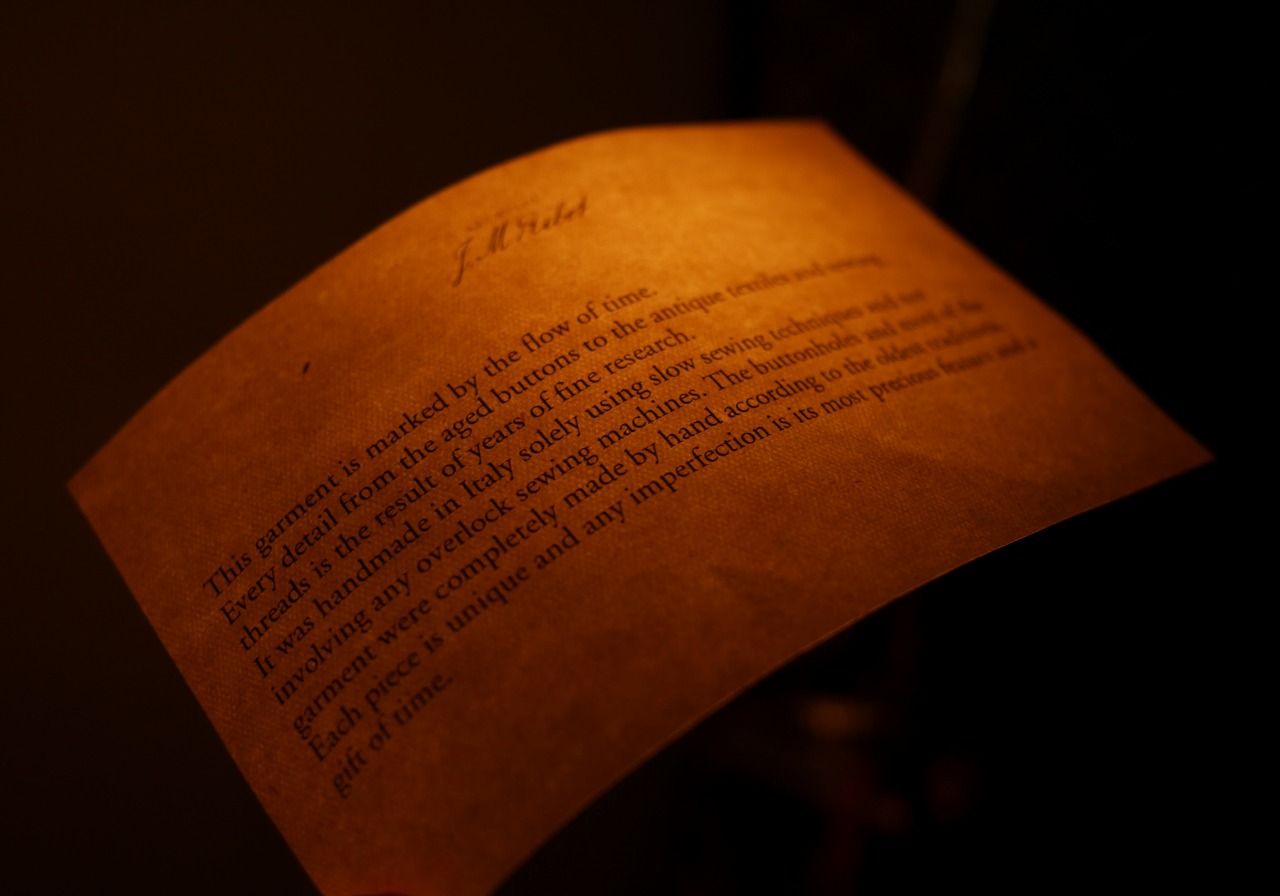 J.M Ribot
This garment is marked by the flow of time.
Every detail from the aged buttons to the antique textiles and sewing
threads is the result of years of fine research.
It was handmade in Italy solely using slow sewing techniques and not
involving any overlock sewing machines. The buttonholes and most of the
garment were completely made by hand according to the oldest traditions.
Each piece is unique and any imperfection is its most precious feature and a
gift of time.